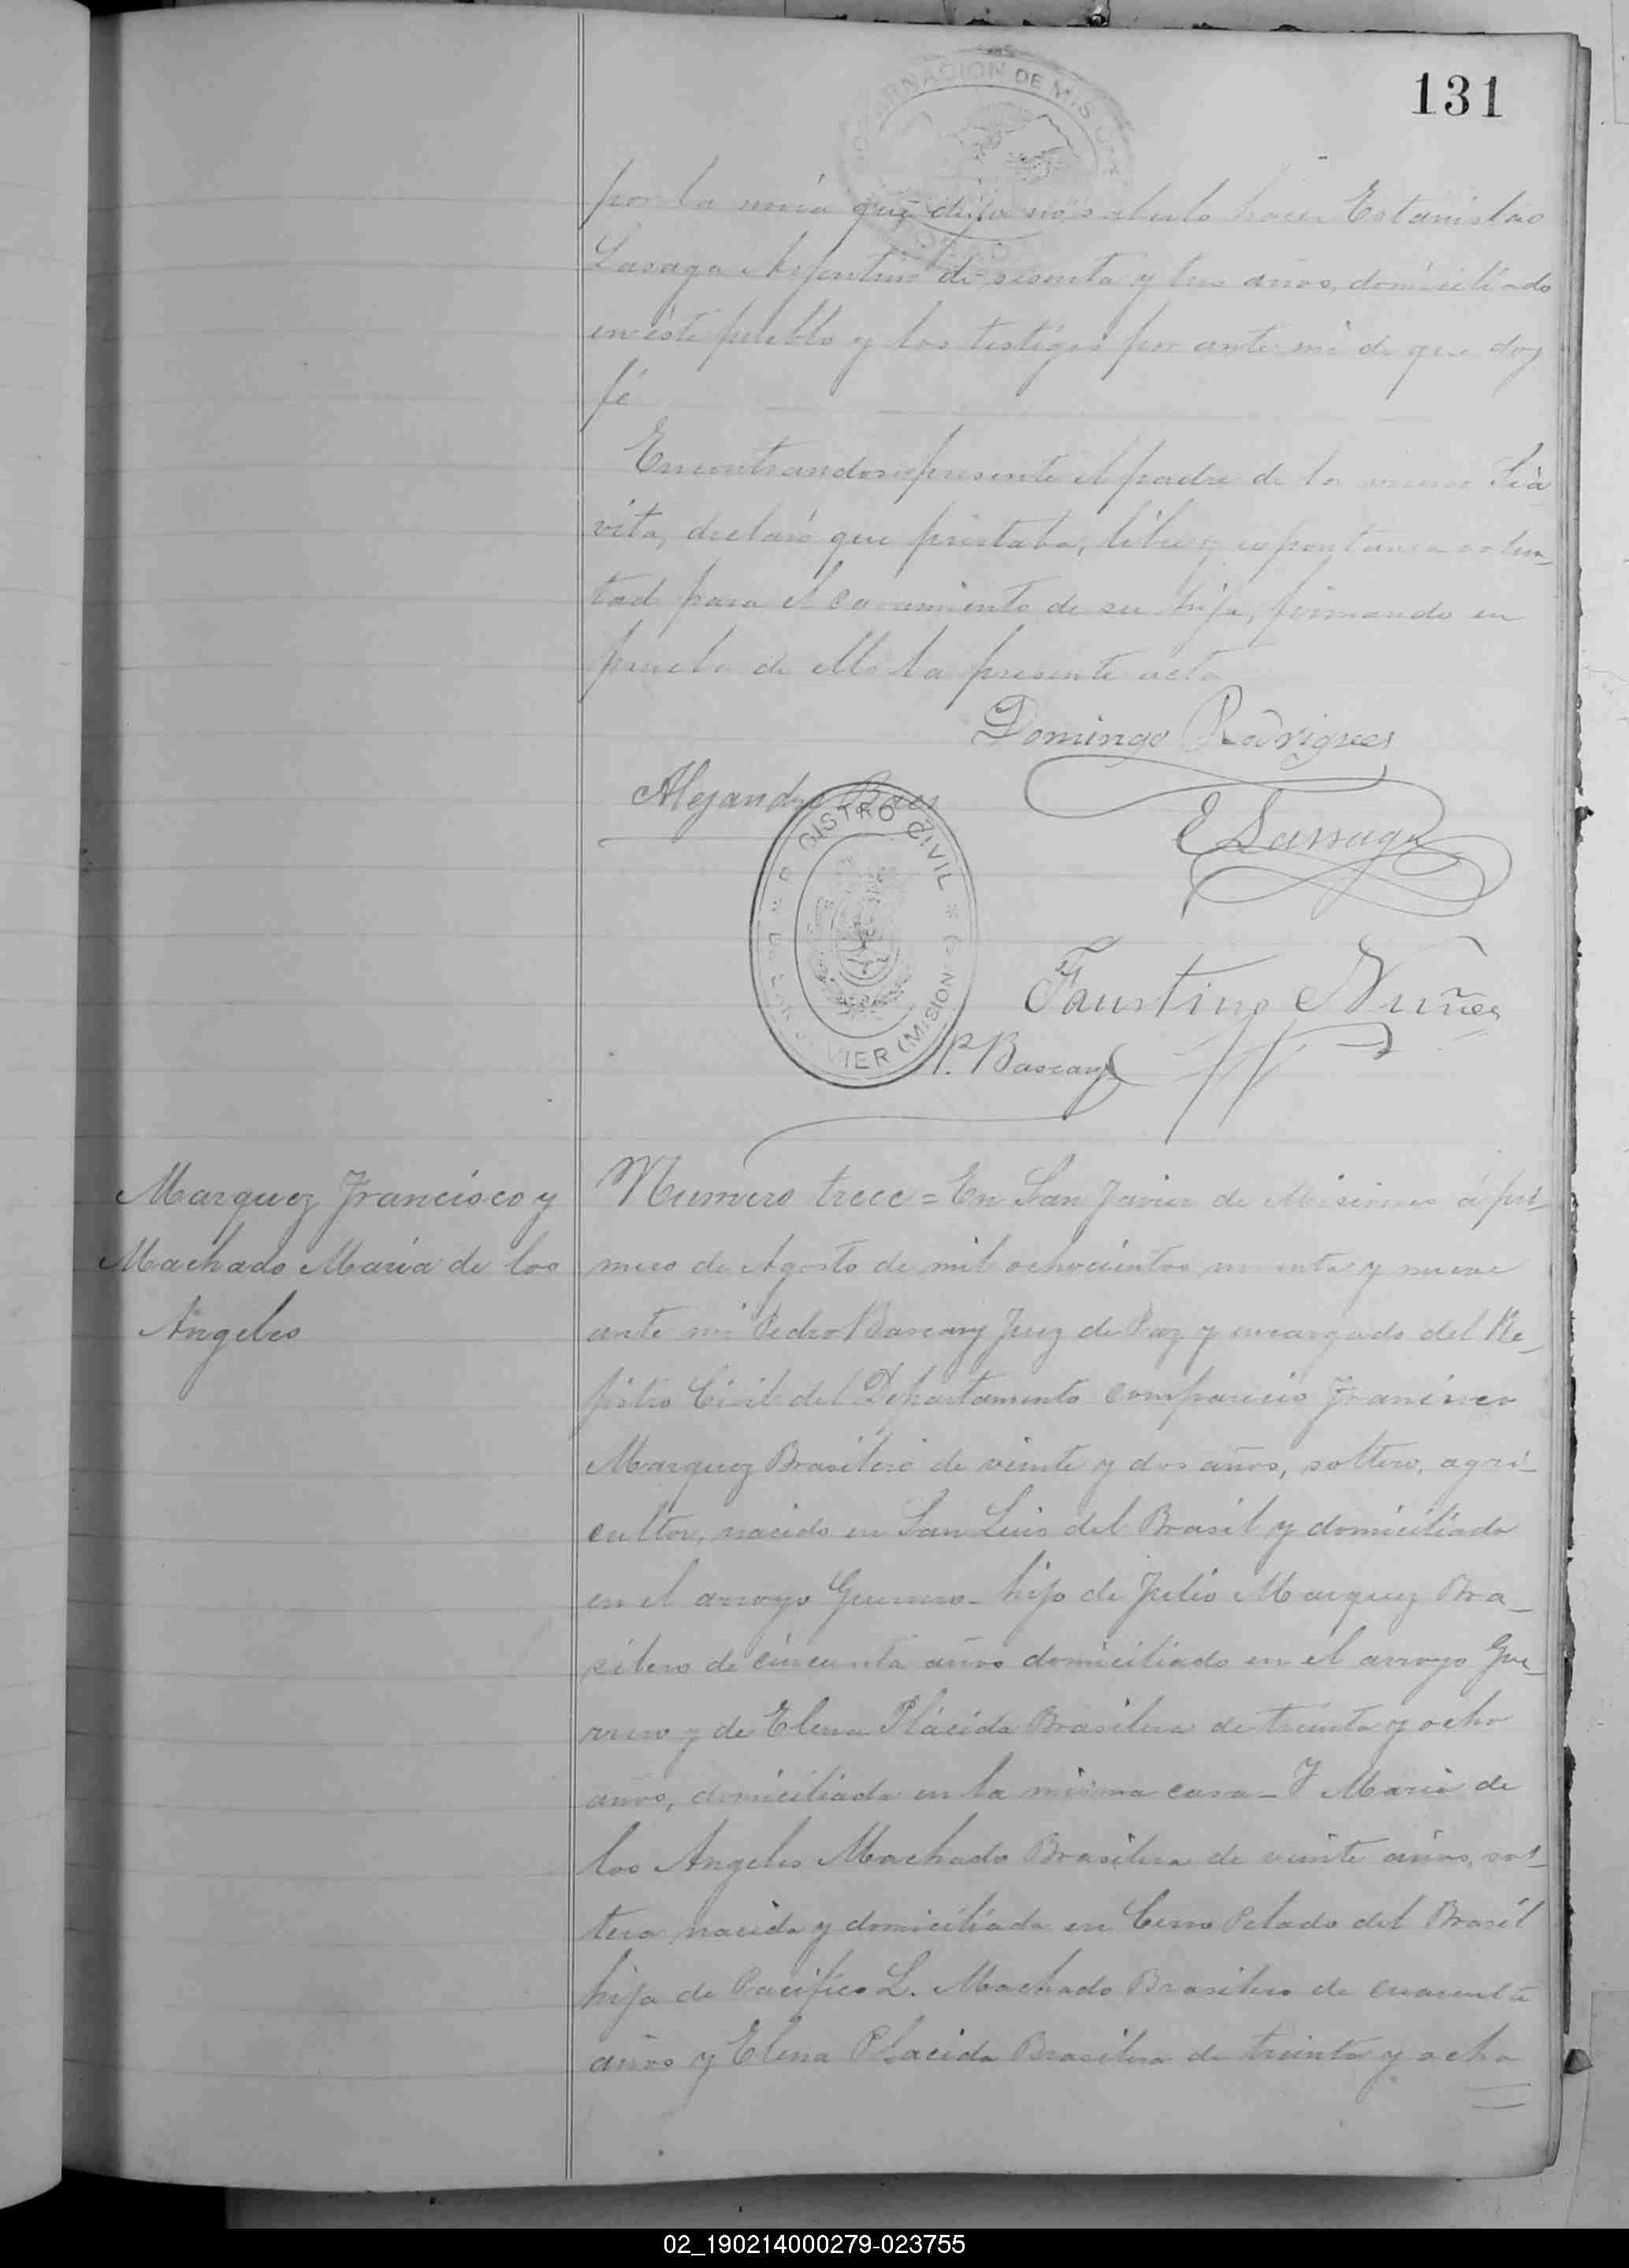 131
GOBERNACION DE MISIONES
por la novia que dijo no saberlo hacer Estanislao
Lasaga Argentino de sesenta y tres años, domiciliado
en éste pueblo y los testigos por ante mi de que doy
fé
Encontrandose presente el padre de la
vita, declaró que prestaba, libre y espontanea volun_
tad para el casamiento de su hija, firmando en
prueba de ello la presente acta
Domingo Rodrigues
Alejandro Baes
E Lassaga
REGISTRO CIVIL * JAVIER (MISIONES
Faustino Nuñes
P. Bascary
Marquez Francisco y
Machado Maria de los
Angeles
Numero trece = En San Javier de Misiones á pri_
mero de Agosto de mil ochocientos noventa y nueve
ante mi Pedro Bascary Juez de Paz y encargado del Re_
jistro Civil del Departamento comparecio Francisco
Marquez Brasilero de veinte y dos años, soltero, agri_
cultor, nacido en San Luis del Brasil y domiciliado
en el arroyo Guerrero_ hijo de Julio Marquez Bra_
silero de cincuenta años domiciliado en el arroyo Gue_
rrero y de Elena Plácida Brasilera de treinta y ocho
años, domiciliada en la misma casa_ Y Maria de
los Angeles Machado Brasilera de veinte años, sol_
tera nacida y domiciliada en Cerro Pelado del Brasil
hija de Pacifico L. Machado Brasilero de cuarenta
años y Elena Placida Brasilera de treinta y ocho
02_190214000279-023755